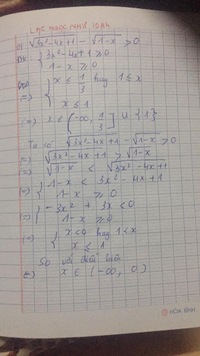 a) √3x²-4x+1 - √1-x > 0
{ 3x²-4x+1 ≥ 0
1-x ≥ 0
⇔ { x ≤ 1/3 hay 1 ≤ x
x ≤ 1
⇔ x ∈ (-∞, 1/3] ∪ {1}
Ta có √3x²-4x+1 - √1-x > 0
⇔ √3x²-4x+1 > √1-x
⇔ √1-x < √3x²-4x+1
⇔ { 1-x < 3x²-4x+1
1-x ≥ 0
⇔ { -3x² + 3x < 0
1-x ≥ 0
⇔ { x < 0 hay 1 < x
x ≤ 1
So với điều kiện
⇔ x ∈ (-∞, 0)